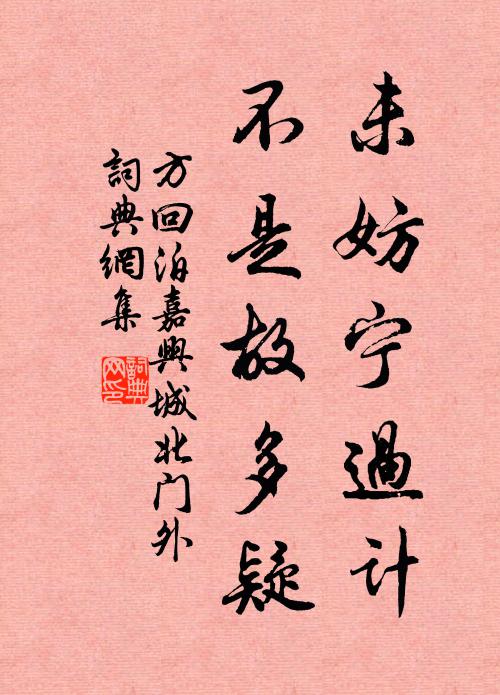 未妨宁過计
不是故多疑
方回泊嘉興城北门外
詞典網集
詞典网印